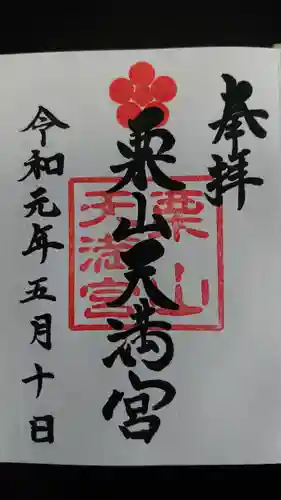 奉拝
栗山天満宮
栗山
天満宮
令和元年五月十日